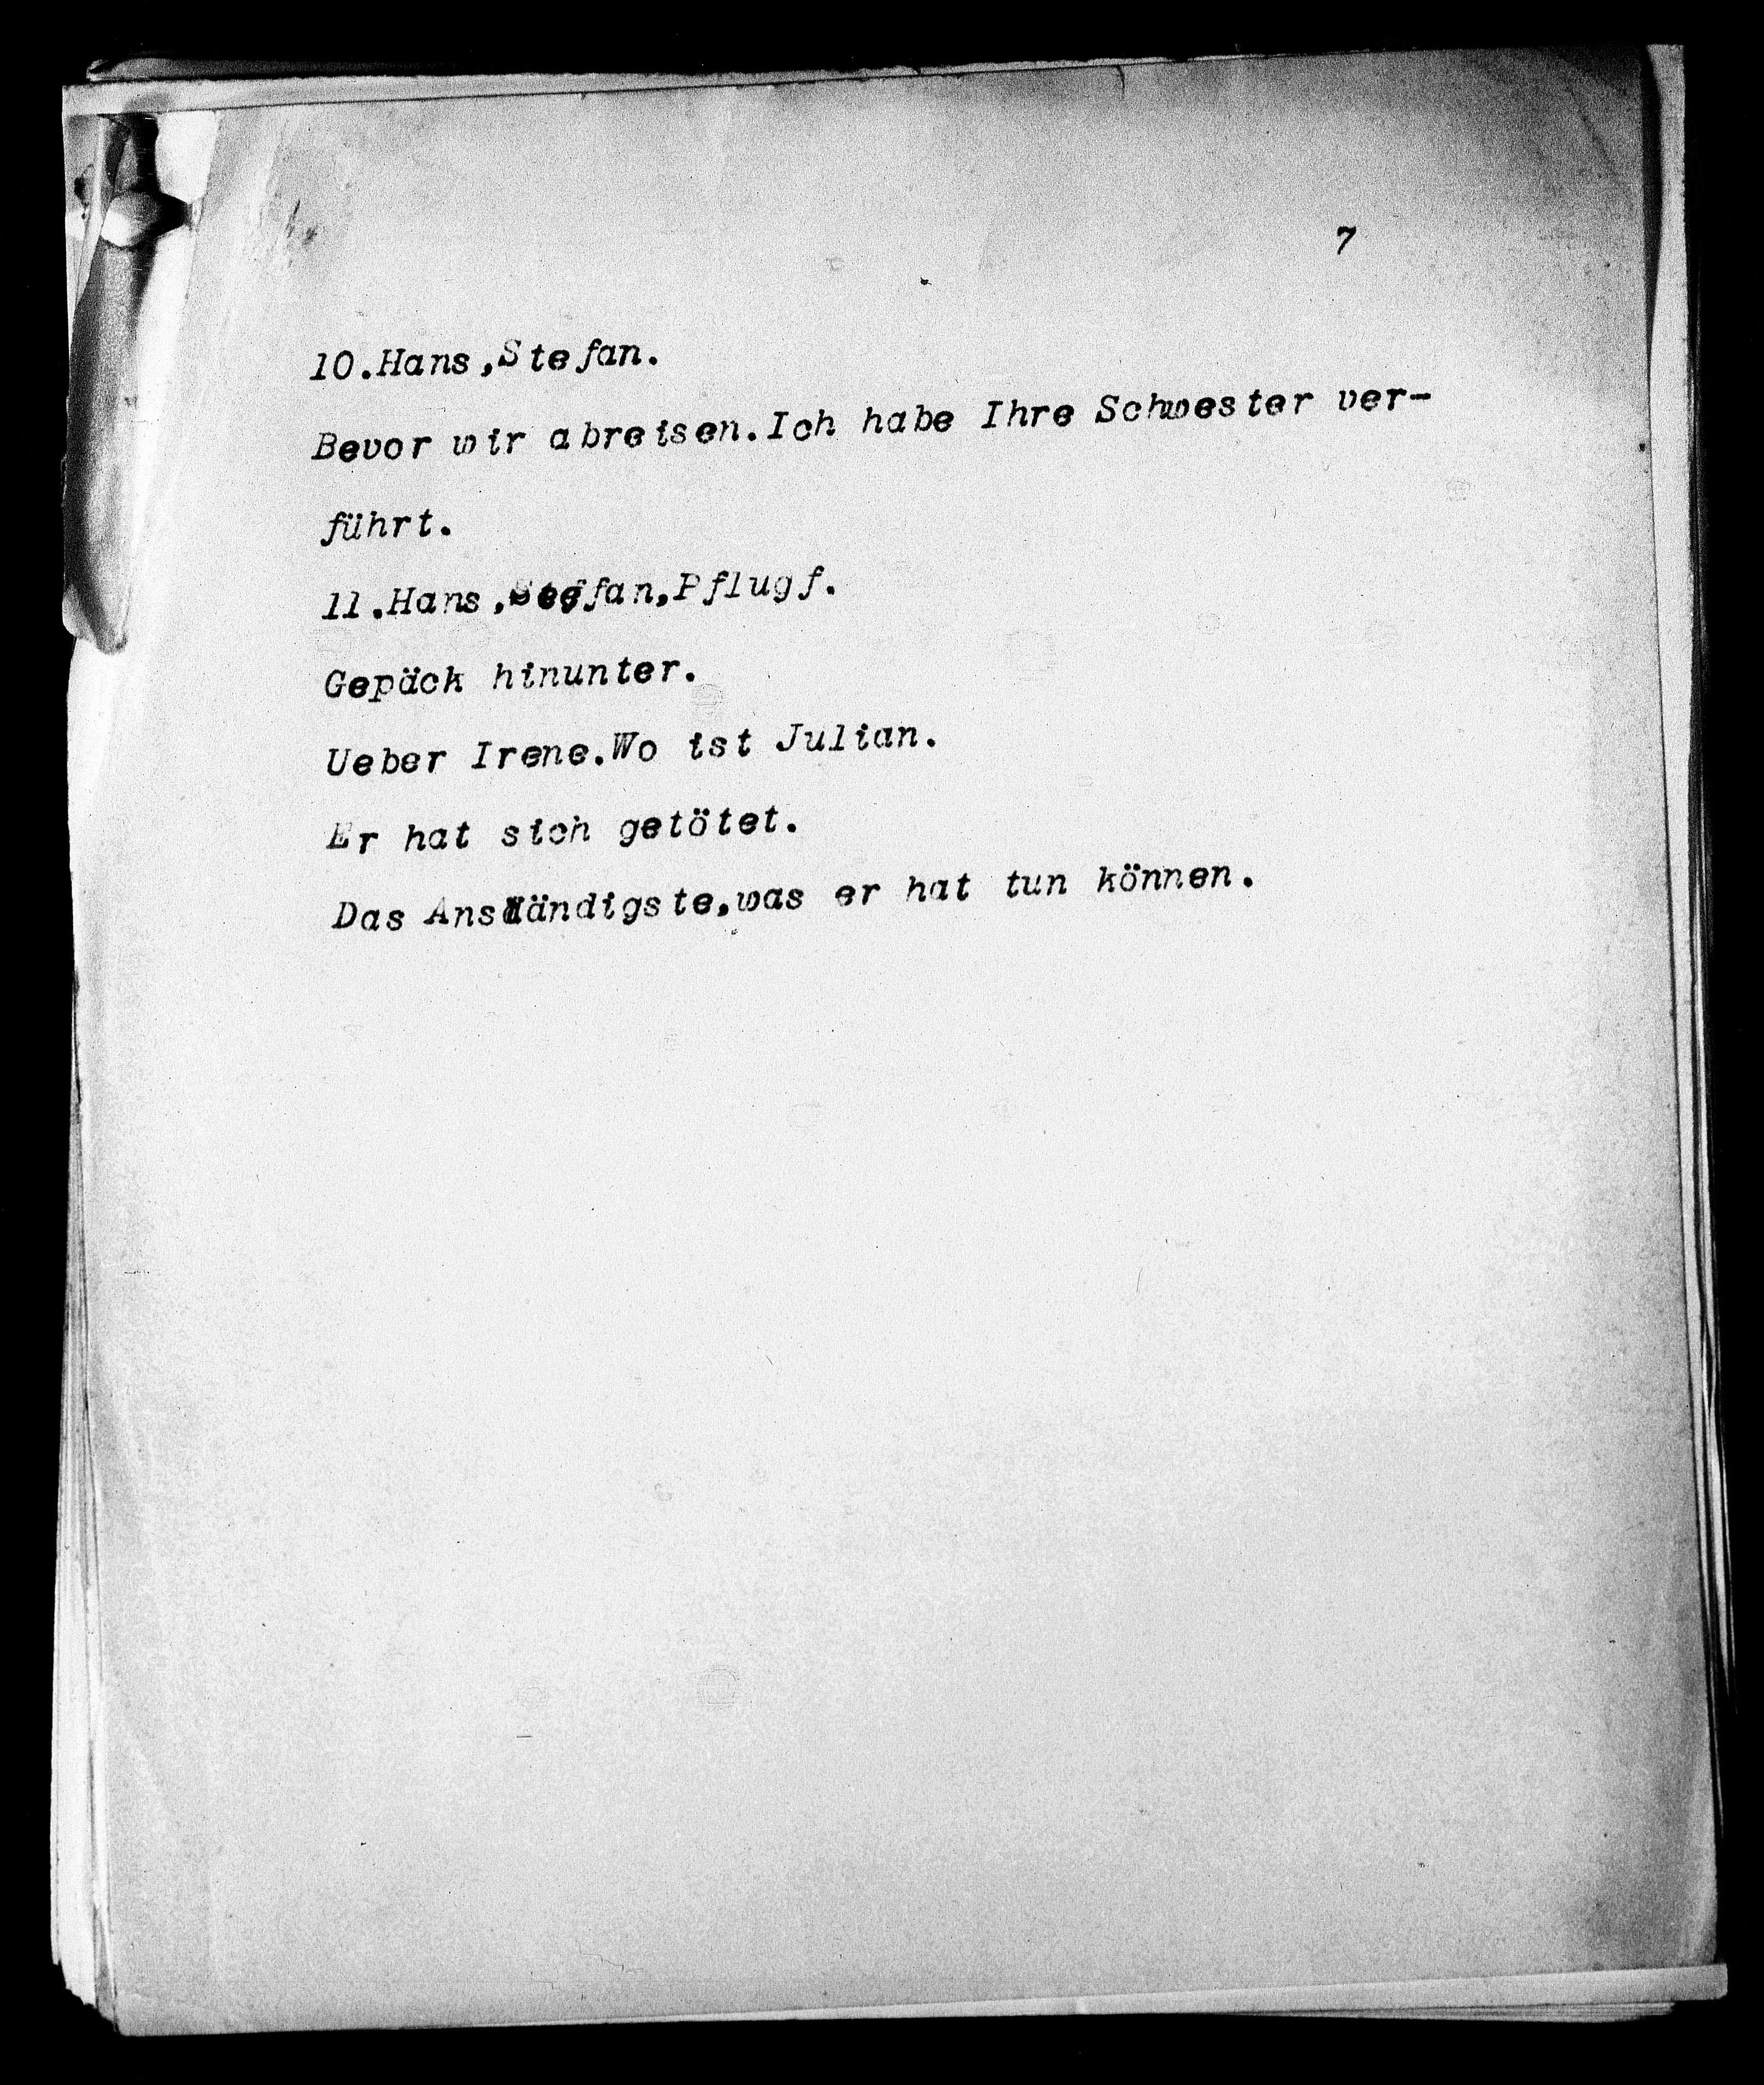 7
10.Hans,Stefan.
Bevor wir abreisen.Ich habe Ihre Schwester ver-
führt.
11.Hans,Stefan,Pflugf.
Gepäck hinunter.
Ueber Irene.Wo ist Julian.
Er hat sich getötet.
Das Anständigste,was er hat tun können.